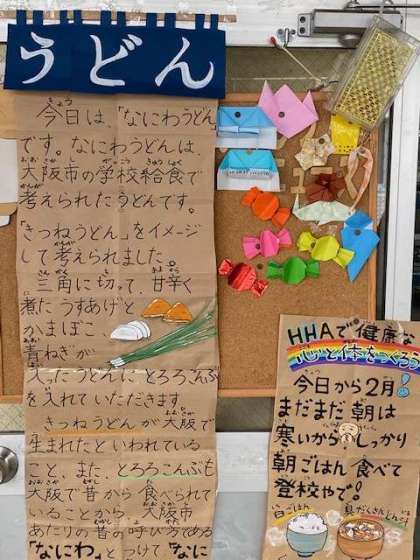 うどん
今日は、「なにわうどん」
です。なにわうどんは、
大阪市の学校給食で
考えられたうどんです。
「きつねうどん」をイメージ
して考えられました。
三角に切って、甘辛く
煮たうすあげと
かまぼこ、
青ねぎが
入ったうどんにとろろこんぶ
を入れていただきます。
きつねうどんが大阪で
生まれたといわれている
こと、また、とろろこんぶも
大阪で昔から食べられて
いることから、大阪市
あたりの昔の呼び方である
「なにわ」とつけて、「なに
HHAで健康な
心と体をつくろう
今日から2月!
まだまだ朝は
寒いから、しっかり
朝ごはん食べて
登校やで!
白ごはん
具だくさんとん汁